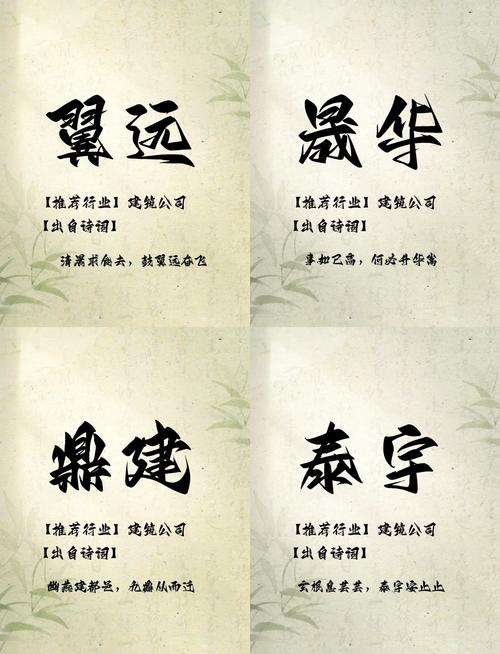 翼远
【推荐行业】建筑公司
【出自诗词】
清漯求仙去，鼓翼远奋飞
晟华
【推荐行业】建筑公司
【出自诗词】
事如已高，何必升华嵩
鼎建
【推荐行业】建筑公司
【出自诗词】
幽燕建都邑，九鼎从而迁
泰宇
【推荐行业】建筑公司
【出自诗词】
玄根息芸芸，泰宇安止止